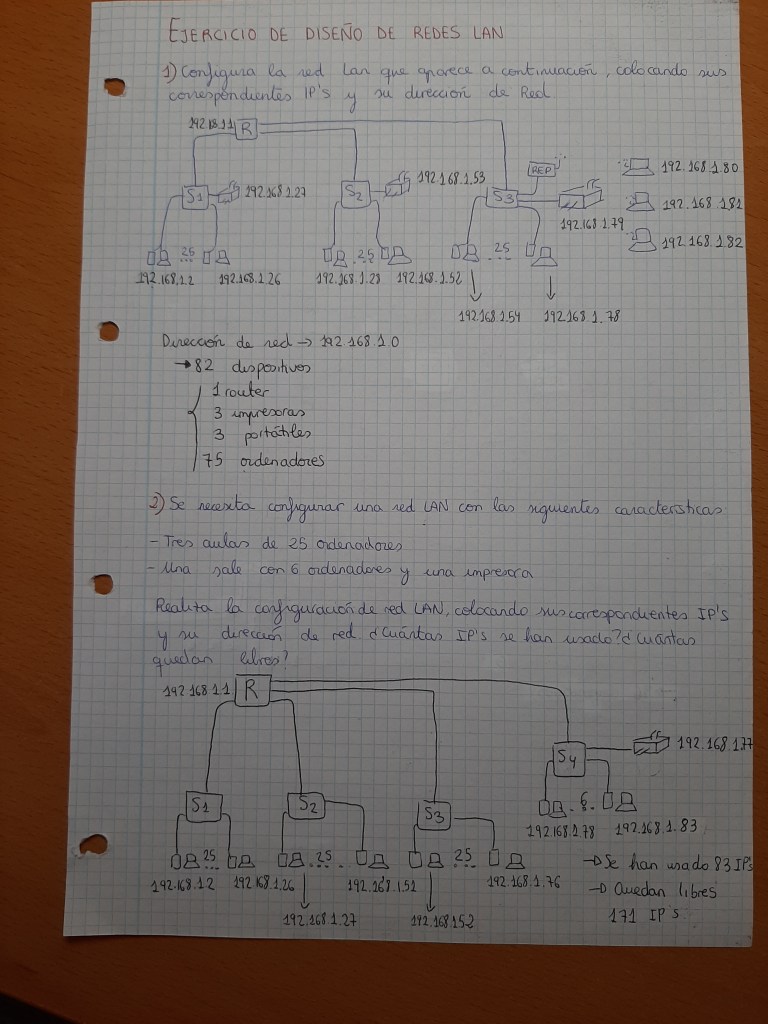 EJERCICIO DE DISEÑO DE REDES LAN
1) Configura la red Lan que aparece a continuación, colocando sus
correspondientes IP's y su dirección de Red
192.168.1.1 R
S1 192.168.1.27
S2 192.168.1.53
S3 REP
192.168.1.79
192.168.1.80
192.168.1.81
192.168.1.82
25
25
25
192.168.1.2 192.168.1.26 192.168.1.28 192.168.1.52
192.168.1.54 192.168.1.78
Dirección de red → 192.168.1.0
→ 82 dispositivos
1 router
3 impresoras
3 portátiles
75 ordenadores
2) Se necesita configurar una red LAN con las siguientes características
- Tres aulas de 25 ordenadores
- Una sale con 6 ordenadores y una impresora
Realiza la configuración de red LAN, colocando sus correspondientes IP'S
y su dirección de red ¿Cuántas IP's se han usado? ¿Cuántas
quedan libres?
192.168.1.1 R
S4 192.168.1.77
6
192.168.1.78 192.168.1.83
S1 S2 S3
25 25 25
192.168.1.2 192.168.1.26 192.168.1.51 192.168.1.76
192.168.1.27 192.168.1.52
→ Se han usado 83 IP's
→ Quedan libres
171 IP's